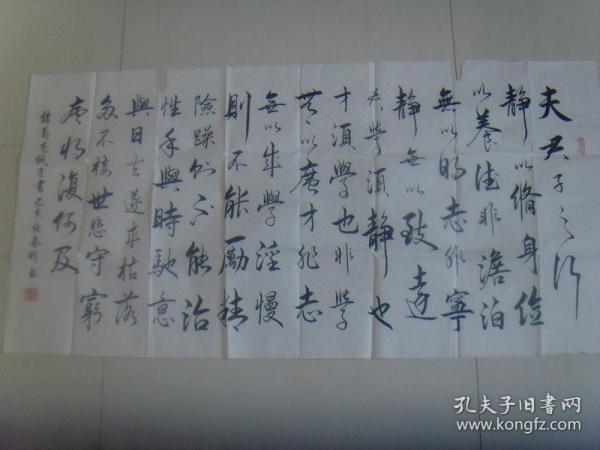 夫君子之行
静以脩身儉
以養德非澹泊
無以明志非寧
靜無以致遠
夫學須靜也
才須學也非學
無以廣才非志
無以成學淫慢
則不能勵精
險躁則不能治
性年與時馳意
與日去遂成枯落
多不接世悲守窮
廬將復何及
諸葛亮誡子書己亥
孔夫子旧书网
www.kongfz.com